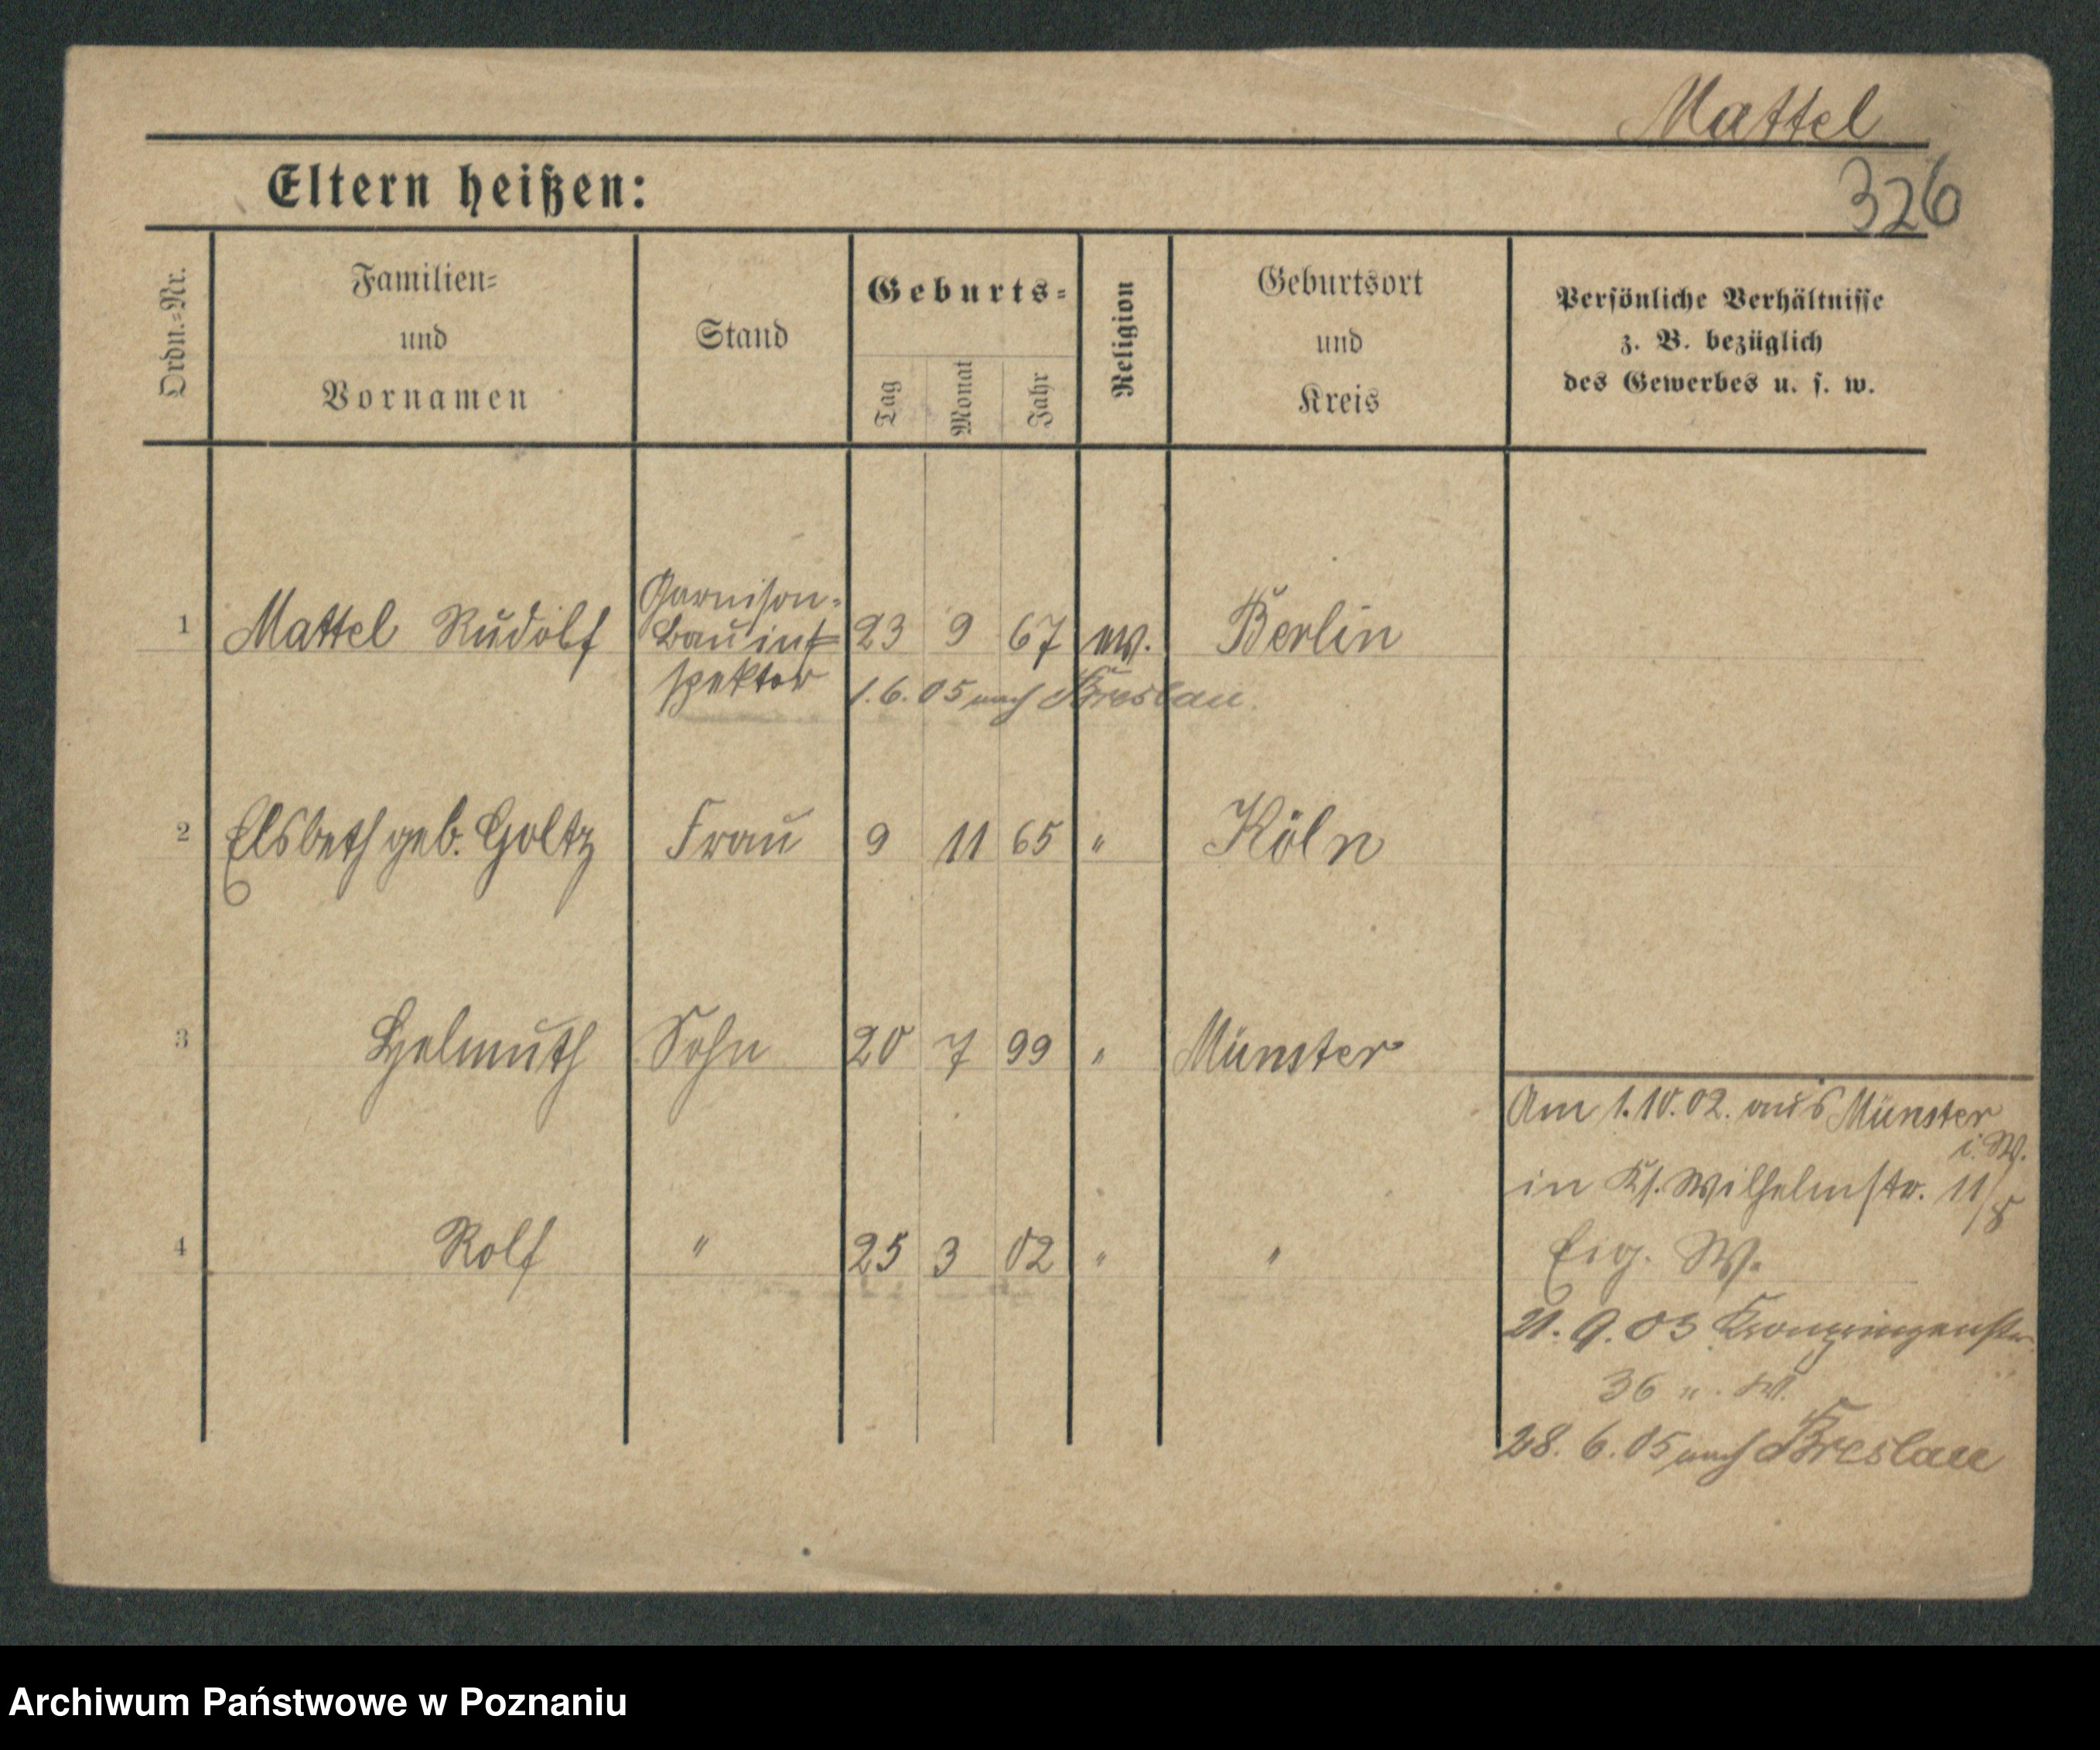 Mattel
Eltern heißen:
326
Ordn.-Nr.
Familien-
und
Vornamen
Stand
Geburts-
Tag
Monat
Jahr
Religion
Geburtsort
und
Kreis
Persönliche Verhältnisse
z. B. bezüglich
des Gewerbes u. s. w.
1 Mattel Rudolf Garnison-
Bauin=
spektor 23 9 67 ev. Berlin
1.6.05 nach Breslau.
2 Elsbeth geb. Goltz Frau 9 11 65 " Köln
3 Helmuth Sohn 20 7 99 " Münster
4 Rolf " 25 3 02 " "
Am 1.10.02. aus Münster
i. W.
in Ks. Wilhelmstr. 11/
Eig. W.
21. 9. 03 Kronprinzenstr.
36 W.
28. 6. 05 nach Breslau
Archiwum Państwowe w Poznaniu